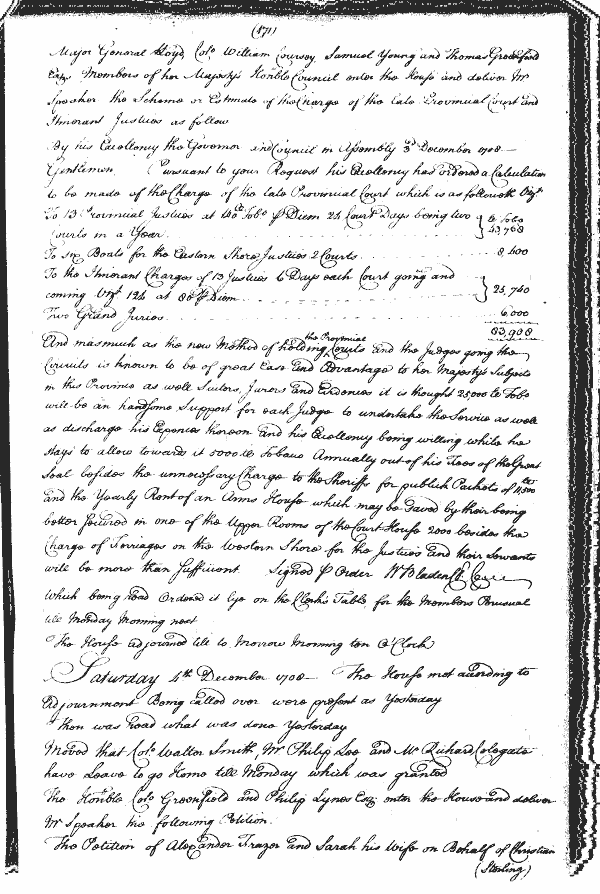 (171)
Major General Lloyd Colo William Coursey Samuel Young and Thomas Greenfield
Esqrs Members of her Majestys Honble Council enter the House and deliver Mr
Speaker the Scheme or Estimate of the Charge of the late Provincial Court and
Itinerant Justices as follow
By his Excellency the Governor and Council in Assembly 3d December 1708
Gentlemen Pursuant to your Request his Excellency has ordered a Calculation
to be made of the Charge of the late Provincial Court which is as followeth Vizt
To 13 Provincial Justices at 140lb Tobo p Diem 24 Court Days being two } lb Tobo
Courts in a Year 43,768
To six Boats for the Eastern Shore Justices 2 Courts 8,400
To the Itinerant Charges of 13 Justices 6 Days each Court going and }
coming Vizt 124 at 80lb p Diem 25,740
Two Grand Juries 6,000
83,908
And inasmuch as the new Method of holding the Provincial Courts and the Judges going the
Circuits is known to be of great Ease and Advantage to her Majestys Subjects
in this Province as well Suitors, Jurors and Evidences it is thought 25000 lb Tobo
will be an handsome Support for each Judge to undertake the Service as well
as discharge his Expences thereon and his Excellency being willing while he
stays to allow towards it 5000 lb Tobacco Annually out of his Fees of the Great
Seal besides the unnecessary Charge to the Sheriffs for publick Packets of 11,500 lbs
and the Yearly Rent of an Arms House which may be saved by their being
better secured in one of the Upper Rooms of the Court House 2000 besides the
Charge of Ferriages on the Western Shore for the Justices and their Servants
will be more than sufficient Signed p Order W Bladen Cl Con
Which being Read Ordered it lye on the Clerk's Table for the Members Perusual
till Monday Morning next
The House adjourned till to Morrow Morning ten O'Clock
Saturday 4th December 1708 The House met according to
Adjournment Being called over were present as Yesterday
Then was Read what was done Yesterday
Moved that Colo Walter Smith, Mr Philip Lee and Mr Richard Colegate
have Leave to go Home till Monday which was granted
The Honble Colo Greenfield and Philip Lynes Esqr enter the House and deliver
Mr Speaker the following Petition.
The Petition of Alexander Frazer and Sarah his Wife on Behalf of Christian
(Sterling)